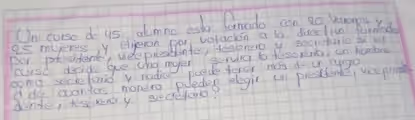 Un curso de 45 alumno esta formado con 20 varones y
25 mujeres y elijeran por votación a la directiva formado
por presidente, vicepresidente, tesorero y secretario si el
curso decide que una mujer la tesorería, un hombre
como secretario y nadie puede tener más de un cargo
d de cuantas manera pueden elegir un presidente, vicepresi
dente, tesorera y secretario?